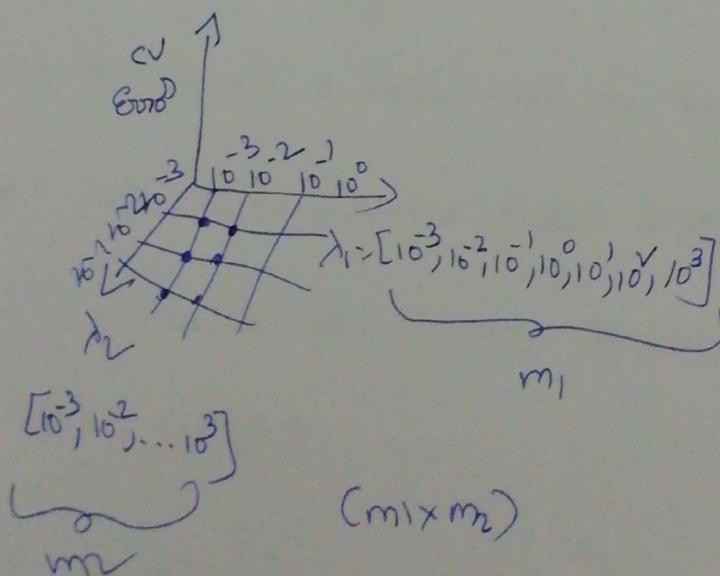 CV
Error
10^-3 10^-2 10^-1 10^0
10^-3
10^-2
10^-1
λ₁=[10^-3, 10^-2, 10^-1, 10^0, 10^1, 10^2, 10^3]
m₁
λ₂
[10^-3, 10^-2, ... 10^3]
m₂
(m₁×m₂)